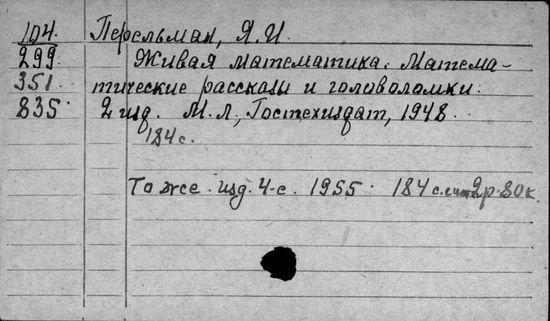 104. Перельман, Я.И.
299 Живая математика. Матема-
351. тические рассказы и головоломки.
835 2 изд. М.Л., Гостехиздат, 1948.
184 с.
То же. изд. 4-е. 1955. 184 с. 2 р. 80 к.